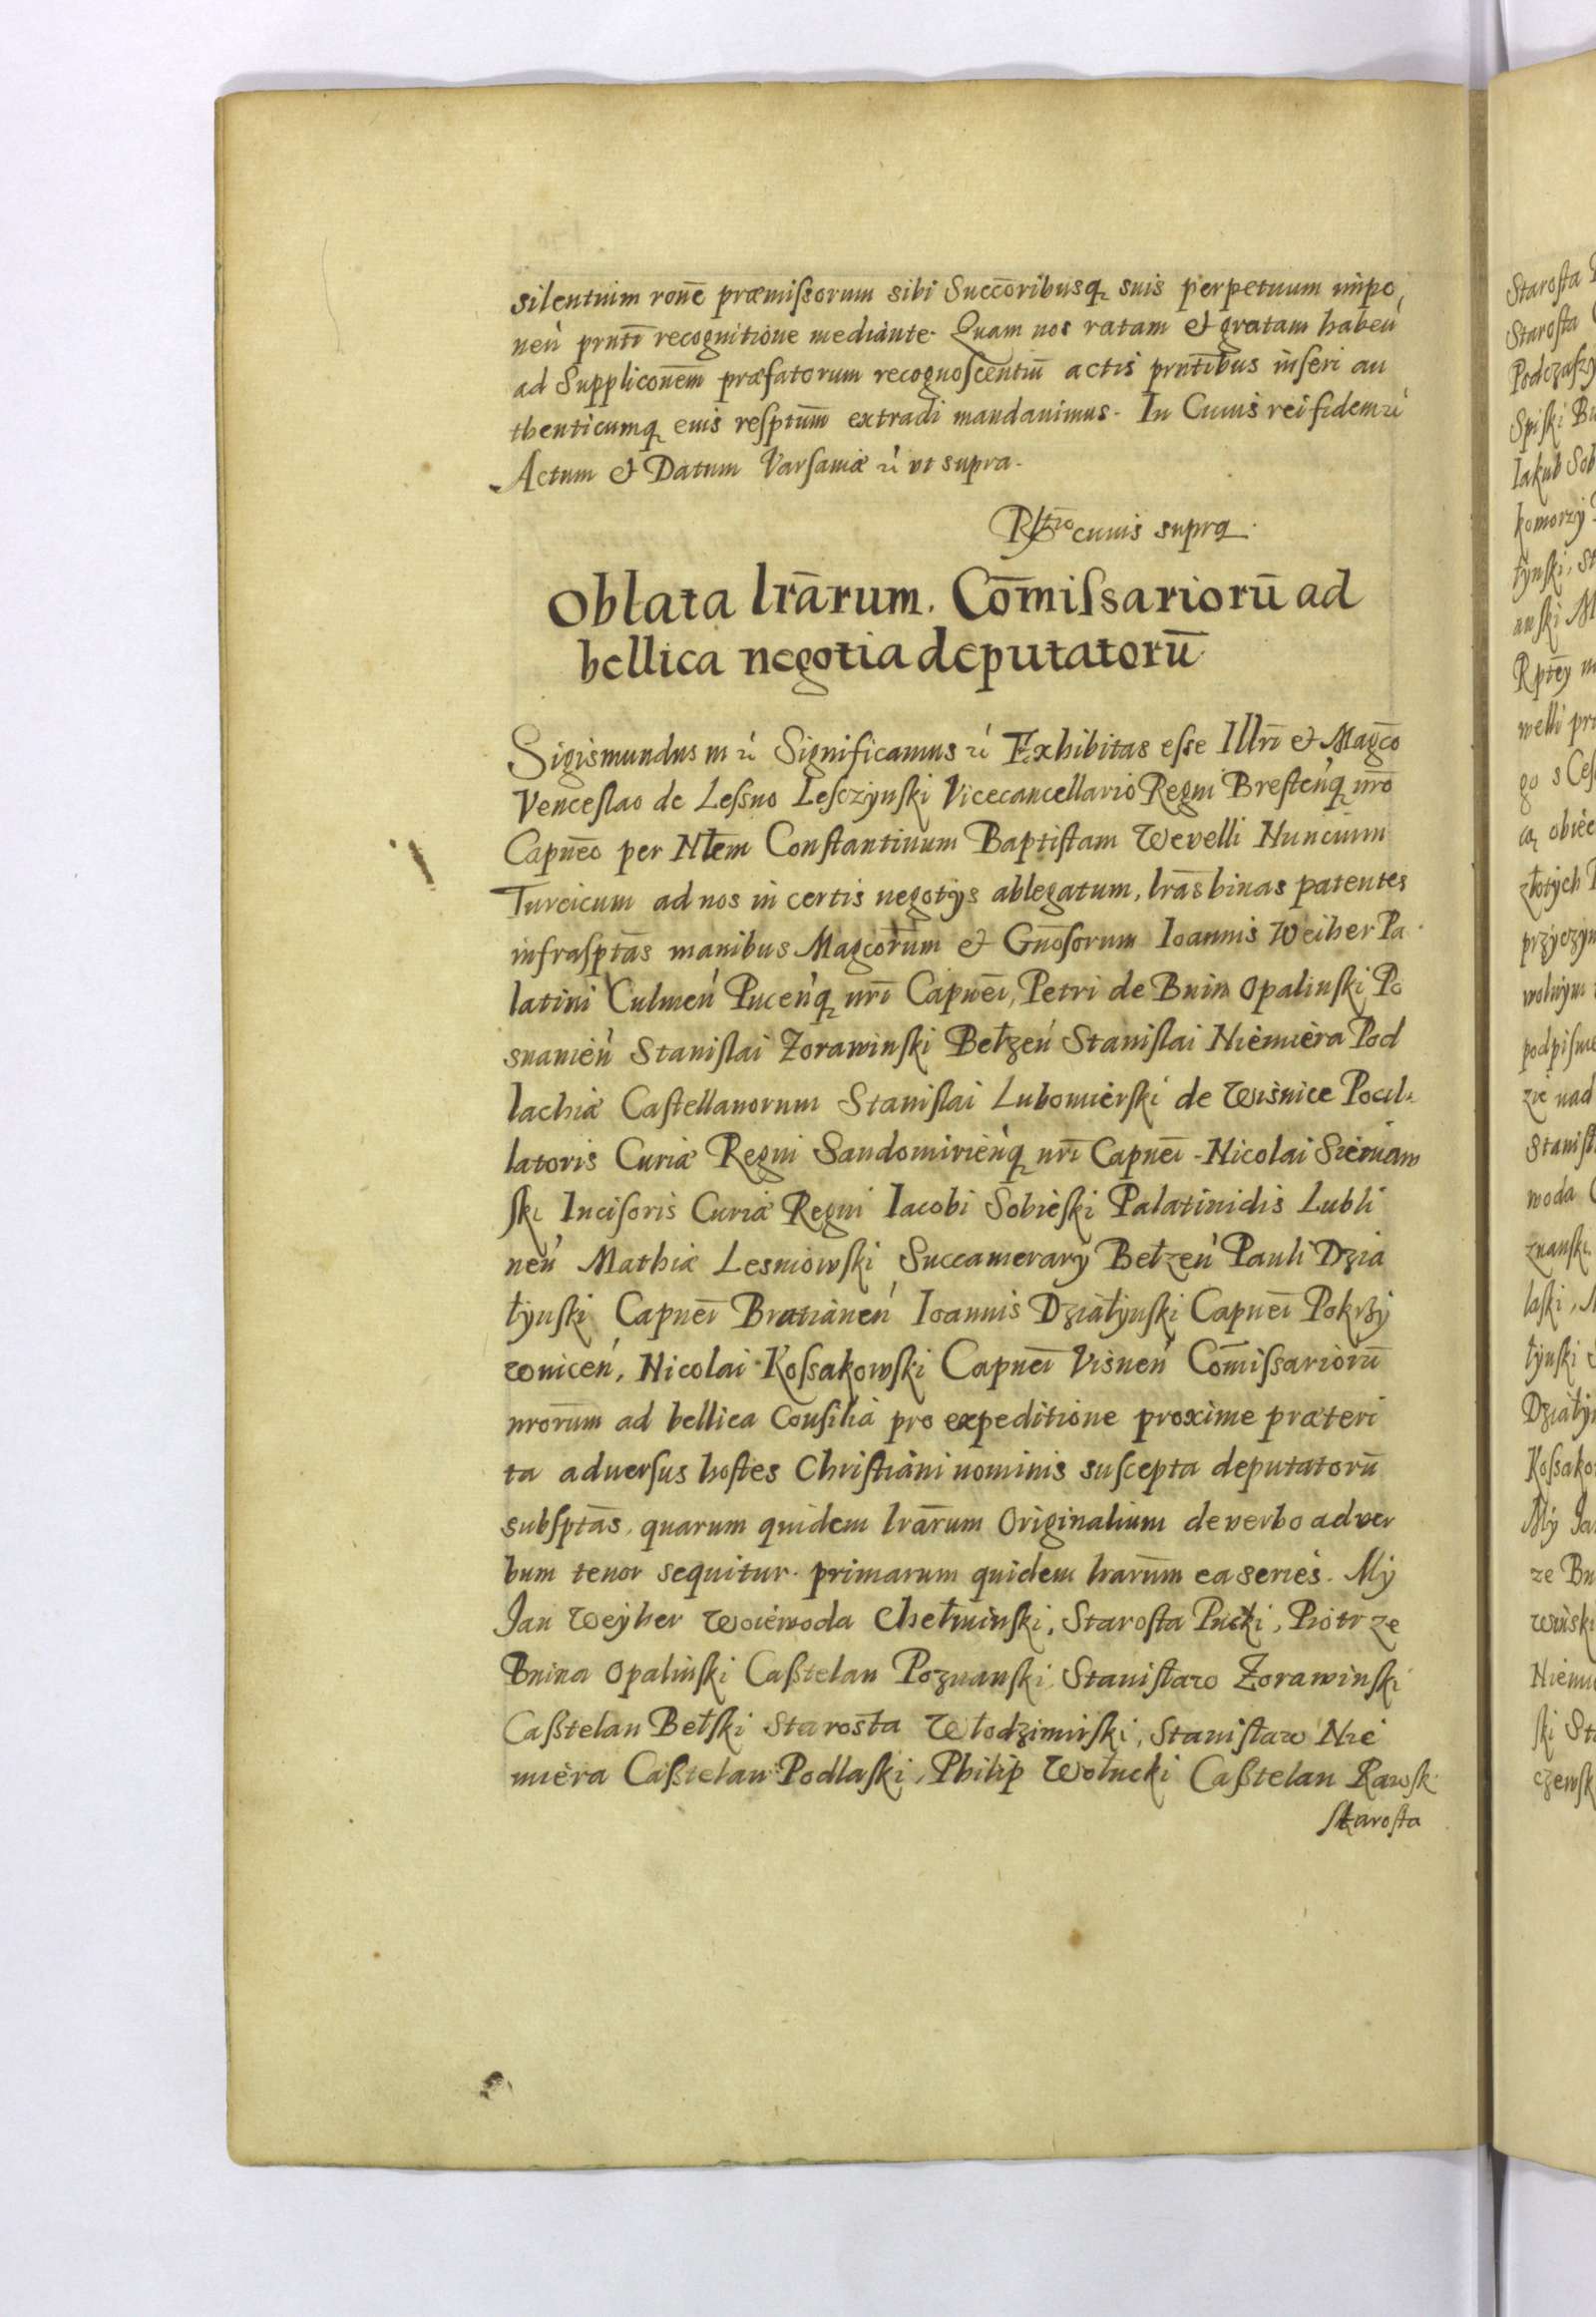 silentium rone̅ præmissorum sibi Succ̅oribusq̨ suis perpetuum impo,
nen̓ prnti̅ recognitione mediante. Quam nos ratam & gratam haben̓
ad Supplicone̅m præfatorum recognoscentiu̅ actis prnti̅bus inseri au
thenticumq̨ eius resptu̅m extradi mandavimus. In Cuius rei fidem
Actum & Datum Varsaviæ ut supra.
cuius supra.
Oblata lra̅rum. Co̅missarioru̅ ad
bellica negotia deputatoru̅
Sigismundus III Significamus Exhibitas esse Illri̅ & Magc̅o
Venceslao de Lessno Lesczÿnski Vicecancellario Regni Bresten̓q̨ nro̅
Capne̅o per Nłem Constantinum Baptistam Wevelli Nuncium
Turcicum ad nos in certis negotÿs ablegatum, lra̅s binas patentes
infrasptas̅ manibus Magcoru̅m & Gno̅sorum Ioannis Weiher Pa
latini Culmen̓ Pucen̓q̨ nri̅ Capnei̅, Petri de Bnin Opalinski Po
snanien̓ Stanislai Zorawinski Bełzen̓ Stanislai Niemiera Pod
lachiæ Castellanorum Stanislai Lubomierski de Wisnice Pocil=
latoris Curiæ Regni Sandomirien̓q̨ nri̅ Capnei̅ - Nicolai Sieniaw
ski Incisoris Curiæ Regni Iacobi Sobieski Palatinidis Lubli
nen̓ Mathiæ Lesniowski Succamerarÿ Bełzen̓ Pauli Dzia
łÿnski Capnei̅ Bratianen̓ Ioannis Działÿnski Capnei̅ Pokrzÿ
wnicen̓, Nicolai Kossakowski Capnei̅ Visnen̓ Co̅missarioru̅
nroru̅m ad bellica Consilia pro expeditione proxime præteri
ta adversus hostes Christiani nominis suscepta deputatoru̅
subsptas̅, quarum quidem lra̅rum Originalium de verbo ad ver
bum tenor sequitur. primarum quidem lraru̅m ea series. Mÿ
Jan Weÿher Woiewoda Chełminski, Starosta Pucki, Piotr ze
Bnina Opalinski Casztelan Poznanski, Stanisław Zorawinski
Casztelan Bełski Starosta Włodzimirski, Stanisław Nie
miera Casztelan Podlaski, Philip Wołucki Casztelan Rawsk
Starosta